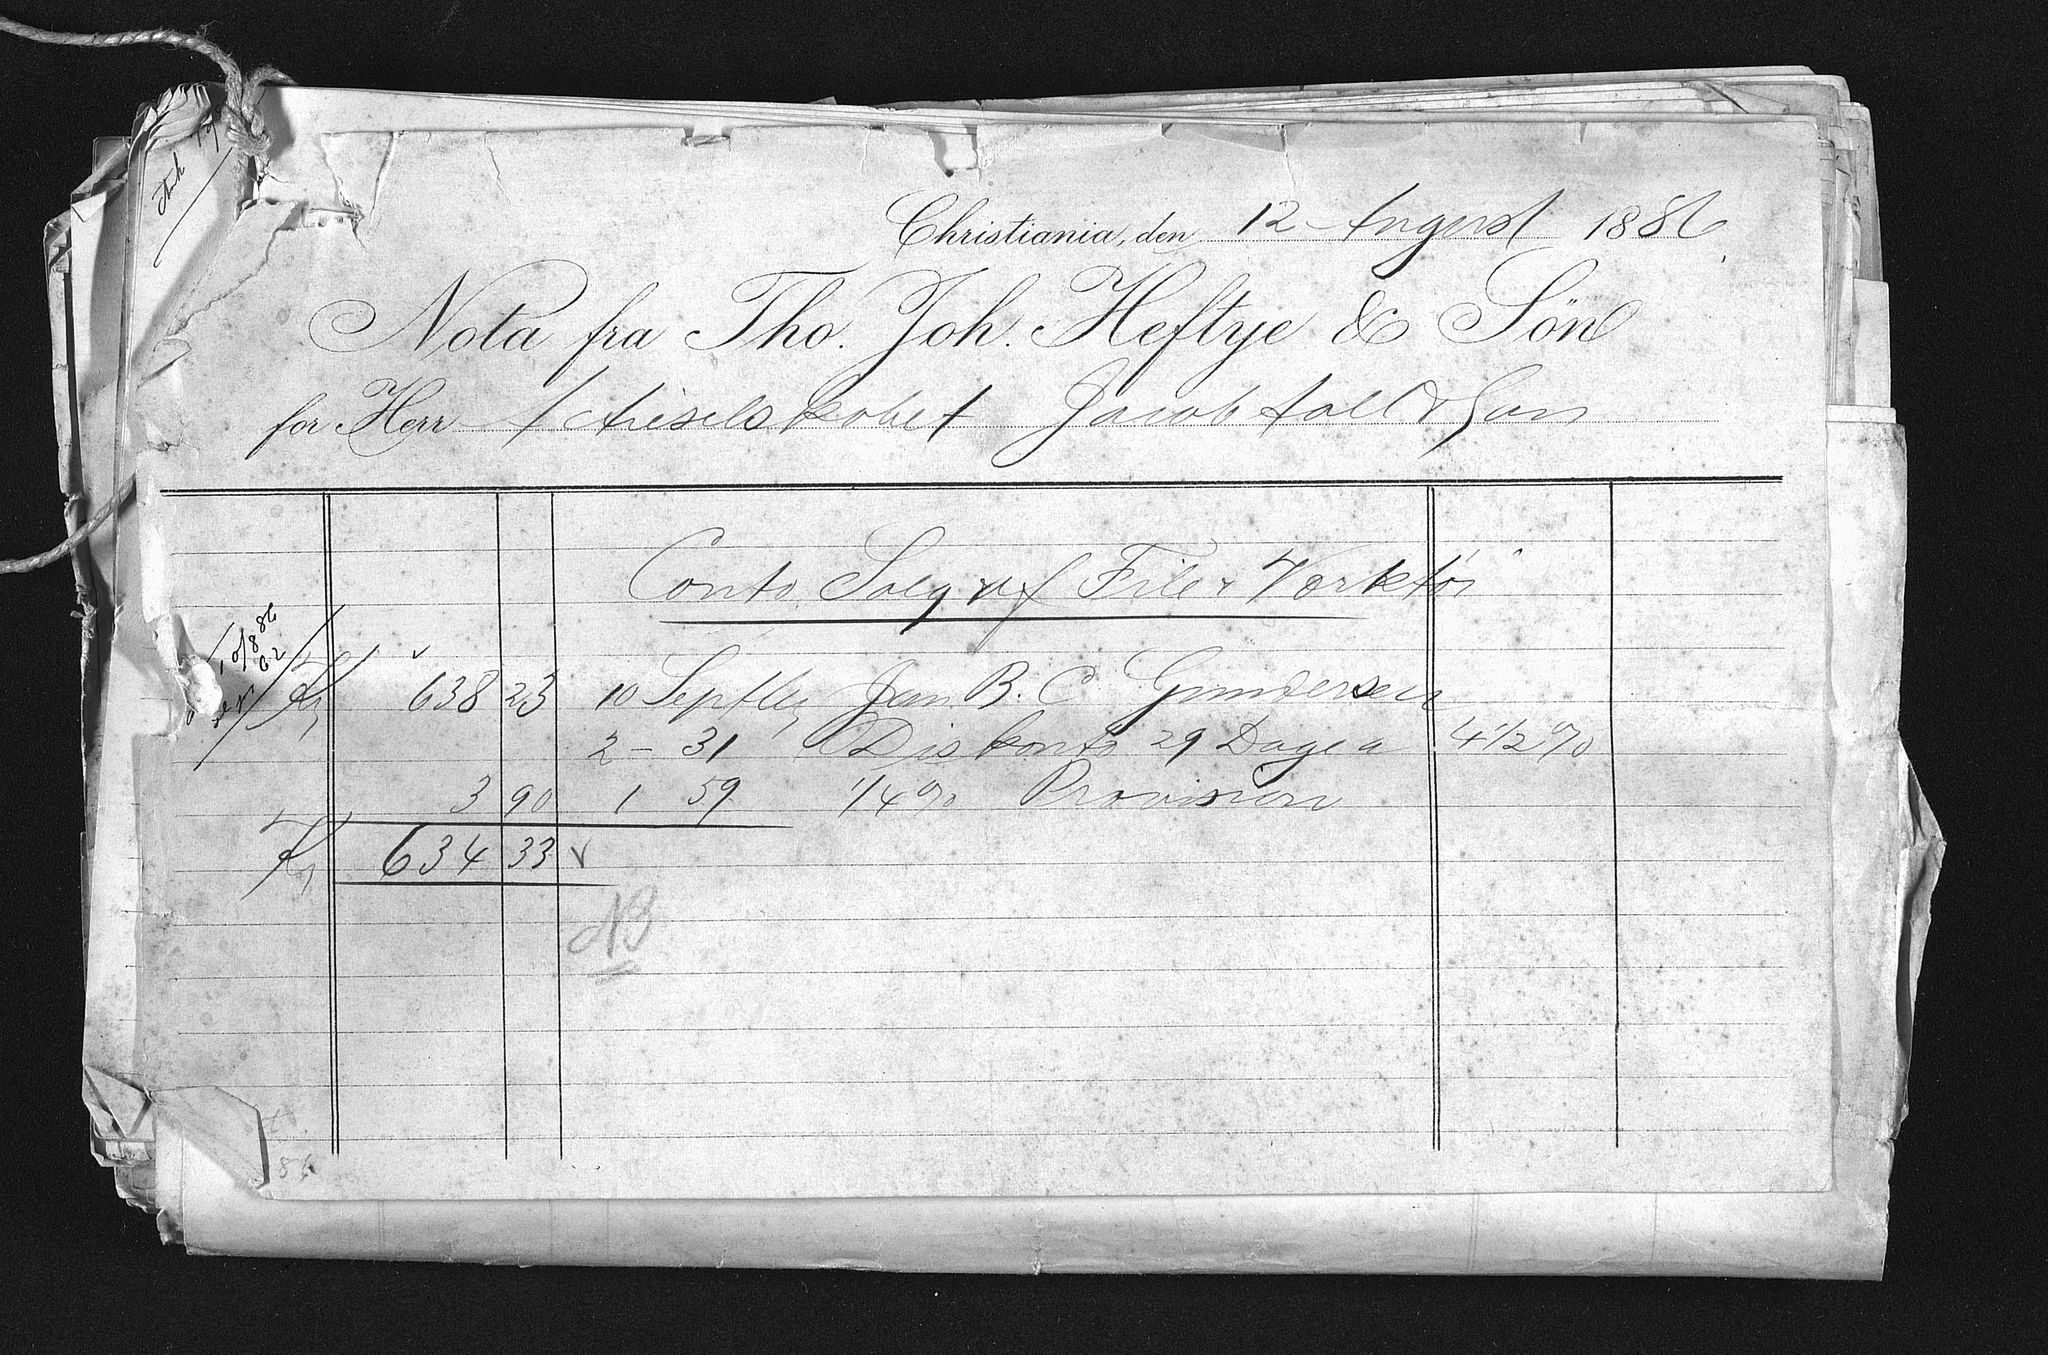 Christiania, den 12 August 1886
Nota fra Tho. Joh. Heftye & Sön
for Herr Actieselskabet Jacob Aall & Søn
Conto Salg af File & Værktöi
10/8 86
Kr 638 23 10 Septbr Jun B. C. Gundersen
2 - 31 Diskonto 29 Dage a 4 1/2 %
3 90 1 59 1/4 % Provision
Kr 634 33
NB
86